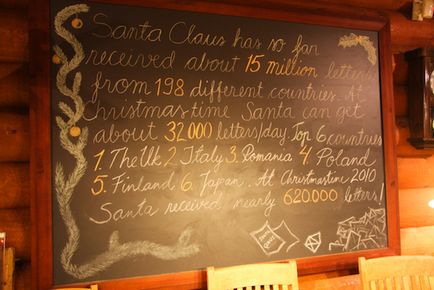 Santa Claus has so far
received about 15 million letters
from 198 different countries. At
Christmastime Santa can get
about 32 000 letters/day. Top 6 countries
1. The Uk 2. Italy 3. Romania 4. Poland
5. Finland 6. Japan. At Christmastime 2010
Santa received nearly 620 000 letters!